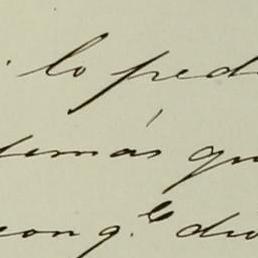 lo ped
demás qu
con q.e dio